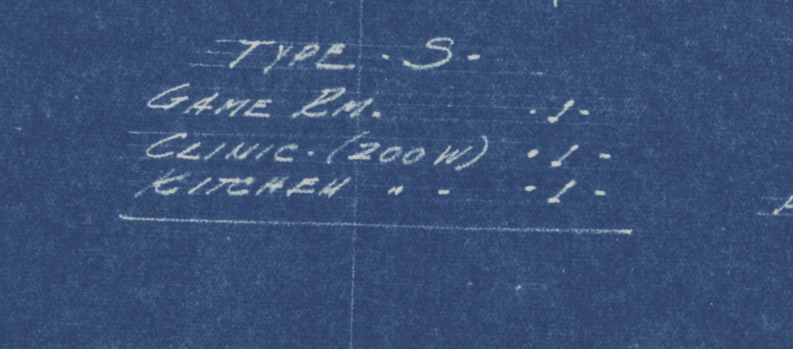 TYPE - S -
GAME RM. - 1 -
CLINIC - (200W) - 1 -
KITCHEN " - - 1 -